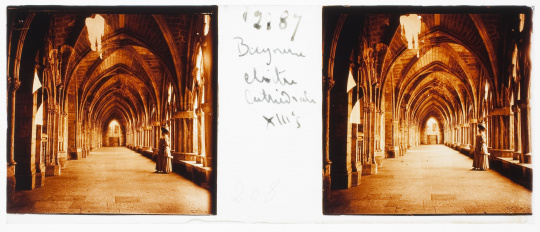 12.87
Bayonne
cloître
Cathédrale
XIIIs
208